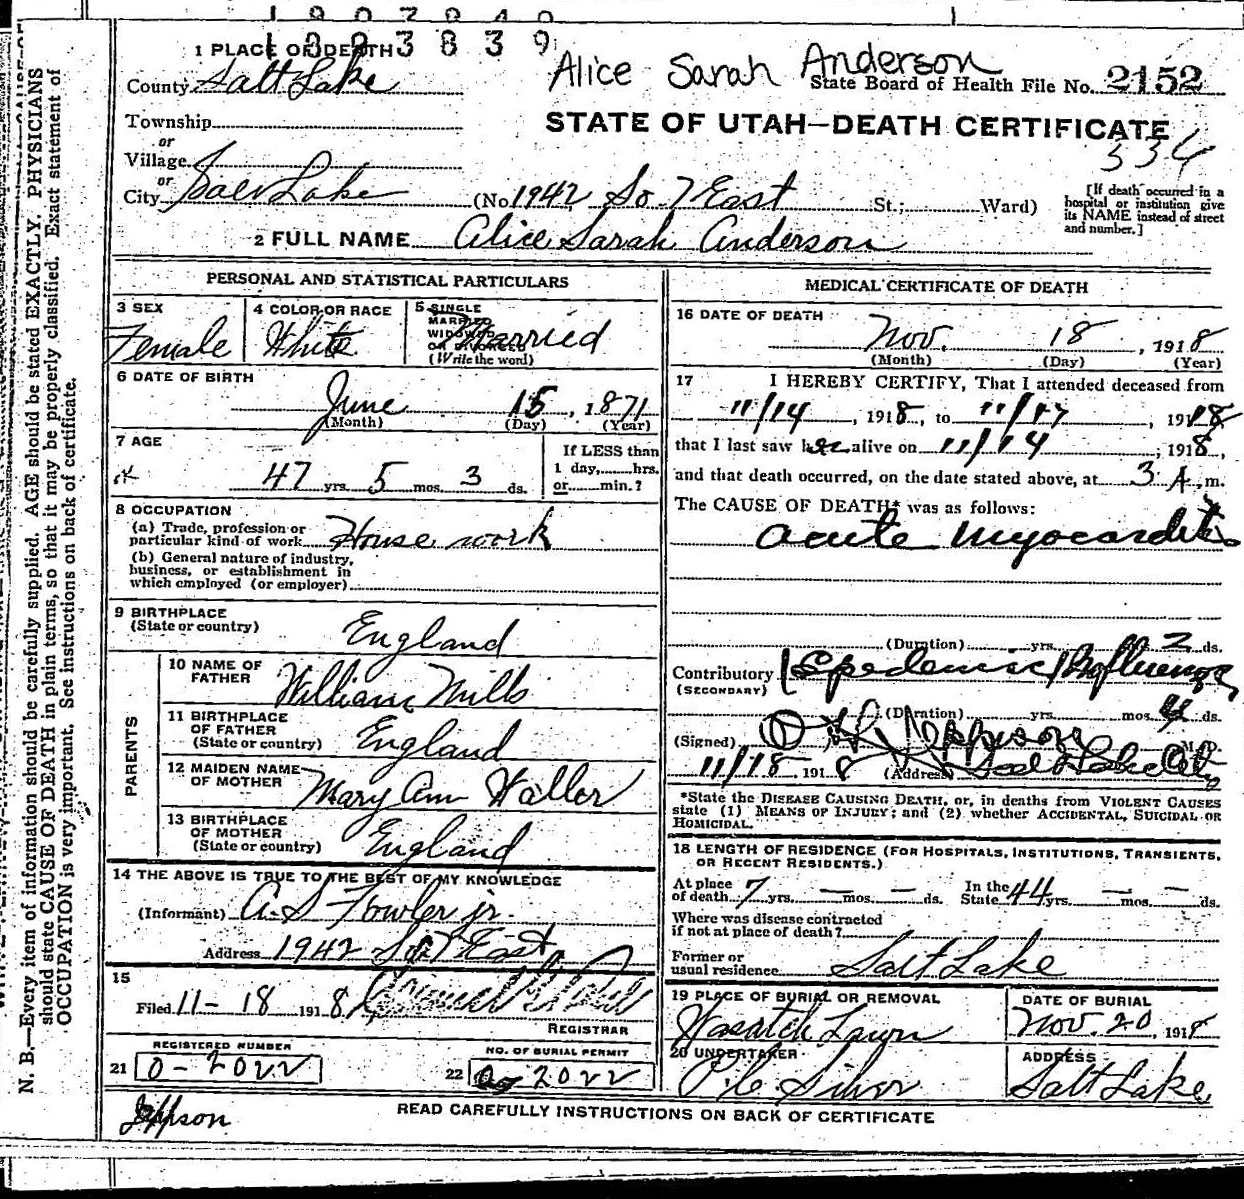 1903839
1 PLACE OF DEATH
County Salt Lake
Alice Sarah Anderson
State Board of Health File No. 2152
Township
or
Village
or
City Salt Lake
STATE OF UTAH—DEATH CERTIFICATE
334
(No. 1942 So. 7 East St.; Ward)
[If death occurred in a
hospital or institution give
its NAME instead of street
and number.]
2 FULL NAME Alice Sarah Anderson
PERSONAL AND STATISTICAL PARTICULARS
3 SEX
Female
4 COLOR OR RACE
White
5 SINGLE
MARRIED
WIDOWED
OR DIVORCED
(Write the word)
Married
6 DATE OF BIRTH
June 15, 1871
(Month) (Day) (Year)
7 AGE
47 yrs. 5 mos. 3 ds.
If LESS than
1 day, hrs.
or min.?
8 OCCUPATION
(a) Trade, profession or
particular kind of work House work
(b) General nature of industry,
business, or establishment in
which employed (or employer)
9 BIRTHPLACE
(State or country) England
PARENTS
10 NAME OF
FATHER William Mills
11 BIRTHPLACE
OF FATHER
(State or country) England
12 MAIDEN NAME
OF MOTHER Mary Ann Waller
13 BIRTHPLACE
OF MOTHER
(State or country) England
14 THE ABOVE IS TRUE TO THE BEST OF MY KNOWLEDGE
(Informant) A. S. Fowler jr.
Address 1942 So 7 East
15
Filed 11-18 1918
REGISTRAR
REGISTERED NUMBER
21 0-2022
NO. OF BURIAL PERMIT
22 0-2022
MEDICAL CERTIFICATE OF DEATH
16 DATE OF DEATH
Nov. 18, 1918
(Month) (Day) (Year)
17 I HEREBY CERTIFY, That I attended deceased from
11/14, 1918, to 11/17, 1918
that I last saw her alive on 11/14, 1918,
and that death occurred, on the date stated above, at 3 A. m.
The CAUSE OF DEATH* was as follows:
acute myocarditis
(Duration) yrs. mos. 2 ds.
Contributory Epedemic Influenza
(SECONDARY)
(Duration) yrs. mos. 4 ds.
(Signed) Jeppson M.D.
11/18, 1918 (Address) Salt Lake City
*State the DISEASE CAUSING DEATH, or, in deaths from VIOLENT CAUSES
state (1) MEANS OF INJURY; and (2) whether ACCIDENTAL, SUICIDAL OR
HOMICIDAL.
18 LENGTH OF RESIDENCE (FOR HOSPITALS, INSTITUTIONS, TRANSIENTS,
OR RECENT RESIDENTS.)
At place
of death 7 yrs. — mos. — ds. In the
State 44 yrs. — mos. — ds.
Where was disease contracted
if not at place of death?
Former or
usual residence Salt Lake
19 PLACE OF BURIAL OR REMOVAL
Wasatch Lawn
DATE OF BURIAL
Nov. 20, 1918
20 UNDERTAKER
ADDRESS
Salt Lake
READ CAREFULLY INSTRUCTIONS ON BACK OF CERTIFICATE
Jeppson
N. B.—Every item of information should be carefully supplied. AGE should be stated EXACTLY. PHYSICIANS
should state CAUSE OF DEATH in plain terms, so that it may be properly classified. Exact statement of
OCCUPATION is very important. See instructions on back of certificate.